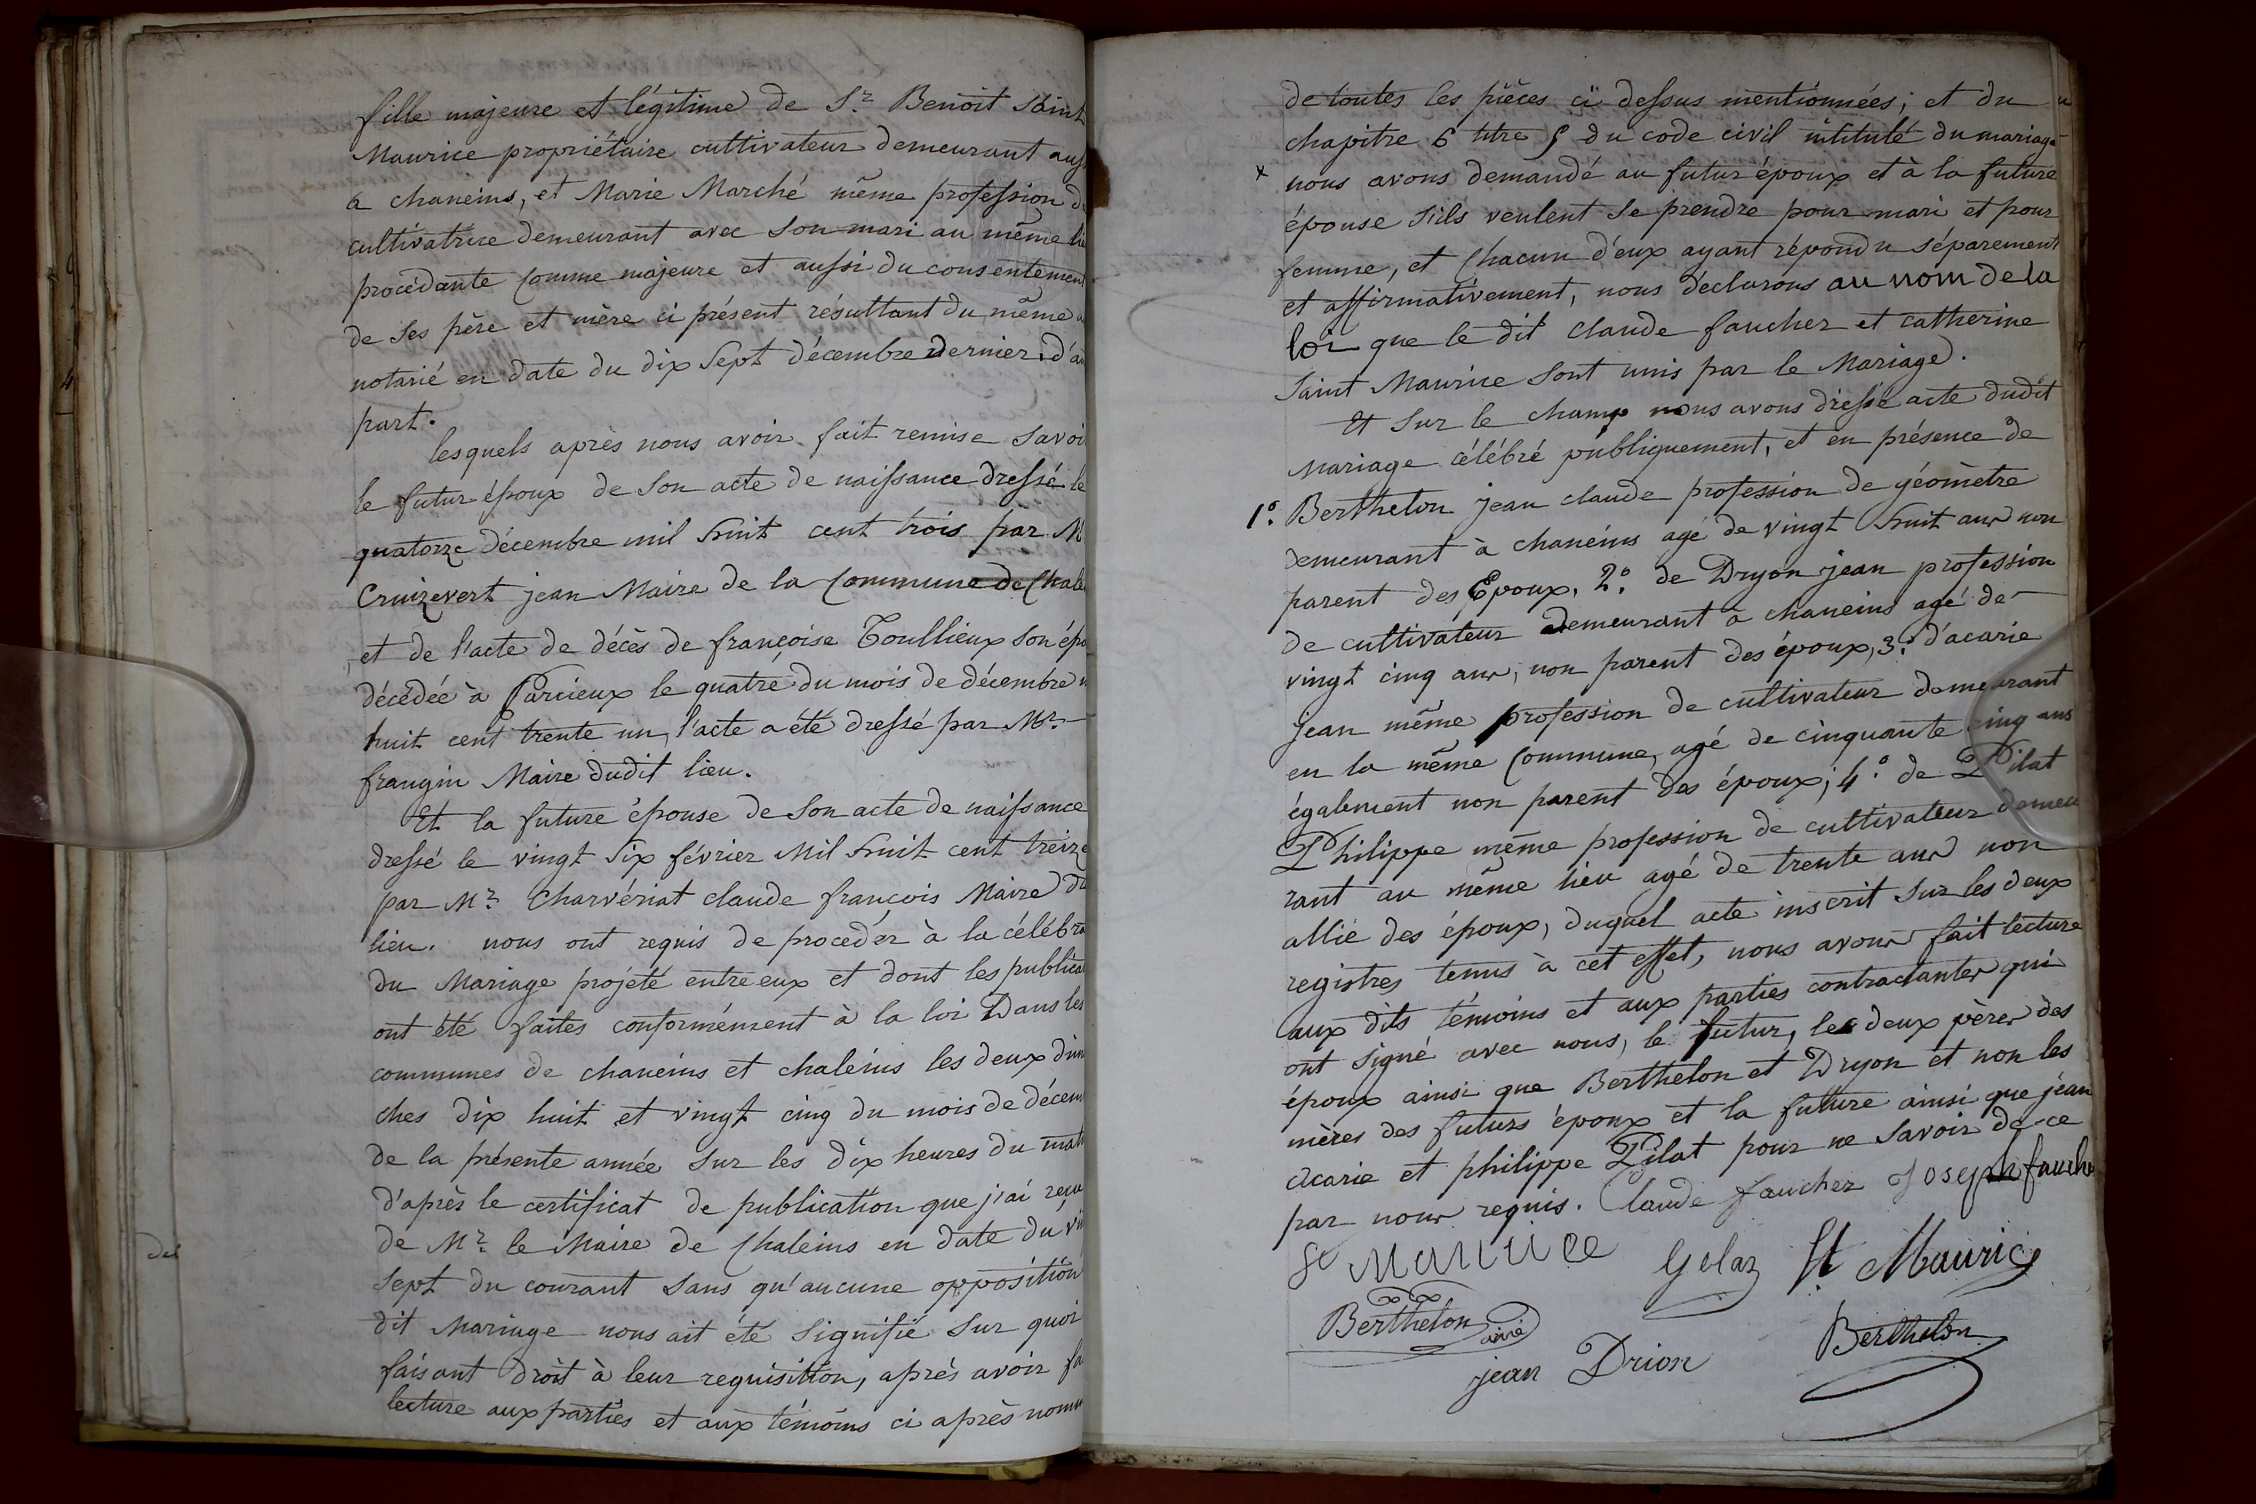 fille majeure et légitime de Sr. Benoit Saint
Maurice propriétaire cultivateur demeurant aus
a chaneins, et Marie Marché même profession d
cultivatrice demeurant avec son mari au même lie
procédante comme majeure et aussi du consentement
de ses père et mère ci présent résultant du même a
notarié en date du dix sept décembre dernier d'au
part.
lesquels après nous avoir fait remise savoir
le futur époux de son acte de naissance dressé le
quatorze décembre mil huit cent trois par M
Cruizevert jean Maire de la Commune de Chale
et de l'acte de décès de françoise Toullieux son épo
décédée à Parcieux le quatre du mois de décembre m
huit cent trente un, l'acte a été dressé par Mr.
frangin Maire dudit lieu.
Et la future épouse de son acte de naissance
dressé le vingt Six février Mil huit cent treize
par Mr. Charvériat claude françois Maire du
lieu. nous ont requis de procéder à la célébra
du Mariage projeté entre eux et dont les publica
ont été faites conformément à la loi Dans les
communes de chaneins et chaleins les deux diman
ches dix huit et vingt cinq du mois de décem
de la présente année sur les dix heures du mati
d'après le certificat de publication que j'ai reçu
de Mr. le Maire de Chaleins en date du vin
sept du courant sans qu'aucune opposition
dit Mariage nous ait été signifié sur quoi
faisant droit à leur requisition, après avoir fa
lecture aux parties et aux témoins ci après nomm
del
de toutes les pièces ci dessus mentionnées; et du
chapitre 6 titre 5 du code civil intitulé du mariage
x nous avons demandé au futur époux et à la future
épouse s'ils veulent se prendre pour mari et pour
femme, et Chacun d'eux ayant répondu séparement
et affirmativement, nous déclarons au nom de la
loi que le dit claude faucher et catherine
Saint Maurice sont unis par le Mariage.
Et sur le champ nous avons dressé acte dudit
Mariage célébré publiquement, et en présence de
1º. Berthelon jean claude profession de géomètre
demeurant à chaneins agé de vingt huit ans non
parent des Epoux. 2º. de Dryon jean profession
de cultivateur demeurant à chaneins agé de
vingt cinq ans, non parent des époux, 3º. d'acarie
Jean même profession de cultivateur demeurant
en la même Commune, agé de cinquante cinq ans
également non parent des époux; 4º. de Pilat
Philippe même profession de cultivateur demeu
rant au même lieu agé de trente ans non
allié des époux, duquel acte inscrit sur les deux
registres tenus à cet effet, nous avons fait lecture
aux dits témoins et aux parties contractantes qui
ont signé avec nous, le futur, les deux pères des
époux ainsi que Berthelon et Dryon et non les
mères des futurs époux et la future ainsi que jean
acarie et philippe Pilat pour ne savoir de ce
par nous requis. Claude faucher Joseph fauche
St Maurice Gelaz St Mauric
Berthelon ainé Berthelon
jean Drion